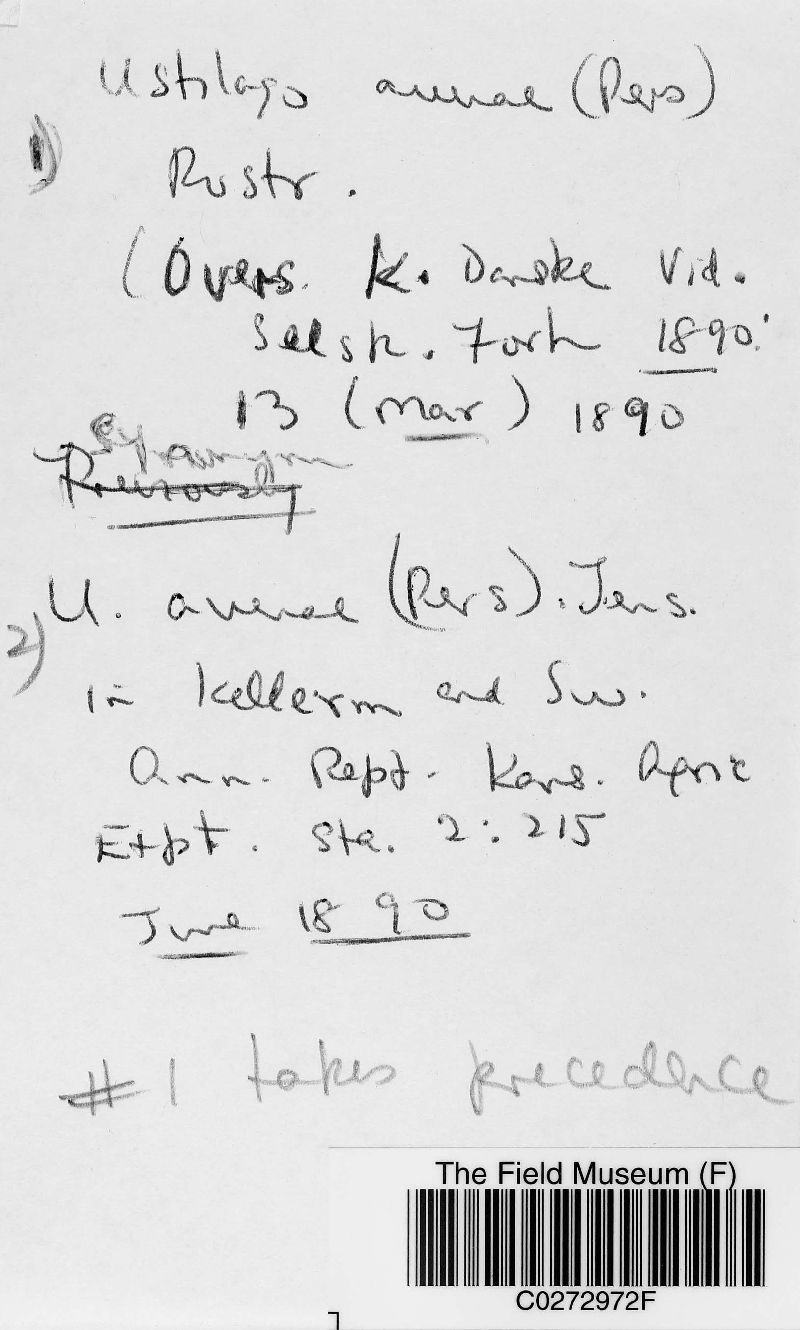 Ustilago avenae (Pers)
1) Rostr.
(Overs. K. Danske Vid.
Selsk. Forh 1890:
13 (Mar) 1890
Synonym
Previously
U. avenae (Pers). Jens.
2)
in Kellerm and Sw.
Ann. Rept. Kans. Agric
Expt. Sta. 2:215
June 1890
#1 takes precedence
The Field Museum (F)
C0272972F